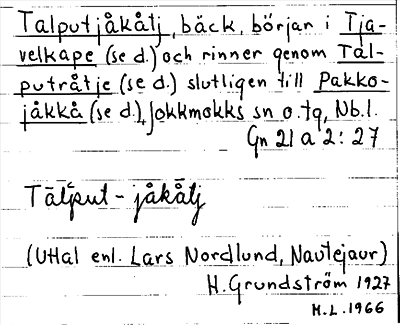 Talputjåkåtj, bäck, börjar i Tja-
velkape (se d.) och rinner genom Tal-
putråtje (se d.) slutligen till Pakko-
jåkkå (se d.), Jokkmokks sn o. tg, Nb.l.
Gn 21 a 2: 27
Tālput-jåkåtj
(Uttal enl. Lars Nordlund, Nautejaur)
H. Grundström 1927
H.L. 1966